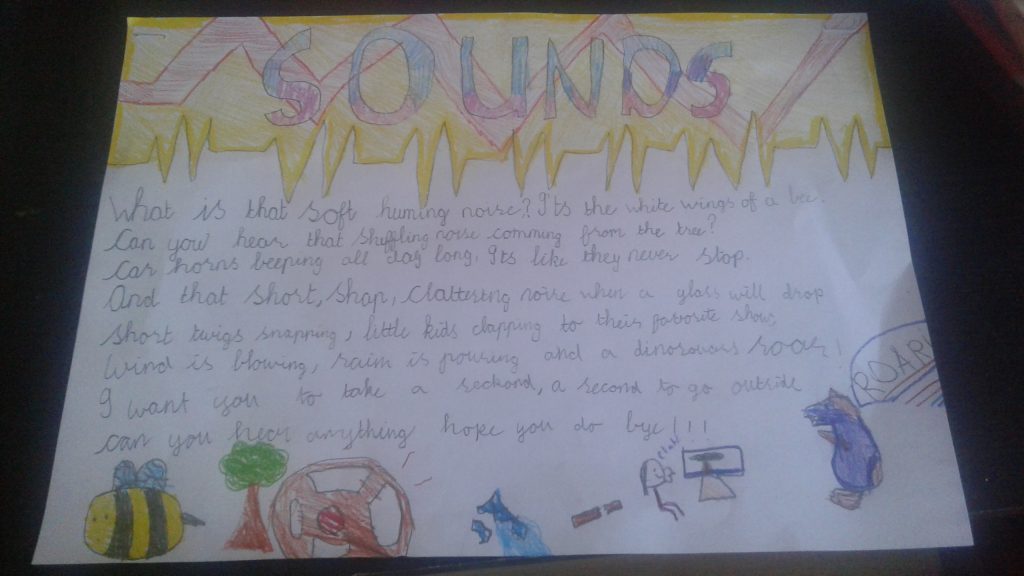 SOUNDS
What is that soft huming noise? I'ts the white wings of a bee.
Can you hear that shuffling noise comming from the tree?
Car horns beeping all day long, Its like they never stop.
And that short, shap, clattering noise when a glass will drop
Short twigs snapping, little kids clapping to their favorite show,
Wind is blowing, raim is pouring and a dinorouus roar!
I want you to take a seckond, a second to go outside
can you hear anything hope you do bye!!!
ROAR!